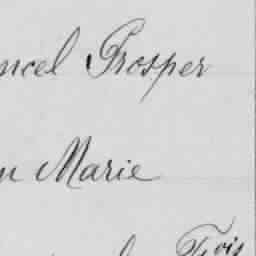 ncel Prosper
n Marie
Trois